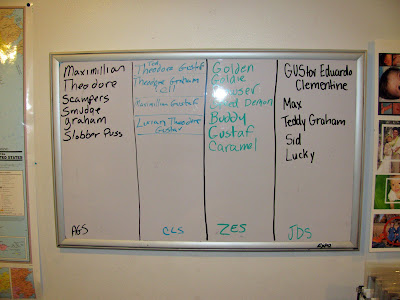 Maximillian
Theodore
Scampers
Smudge
graham
Slobber Puss
AGS
Theodore Gustaf
Theodore Graham
Maximilian Gustafs
Theodore
Gustav
CLS
Golden
Goldie
Bowser
Demon
Buddy
Gustaf
Caramel
ZES
GUStor Eduardo
Clementine
Max
Teddy Graham
Sid
Lucky
JDS
EXPO
STATES